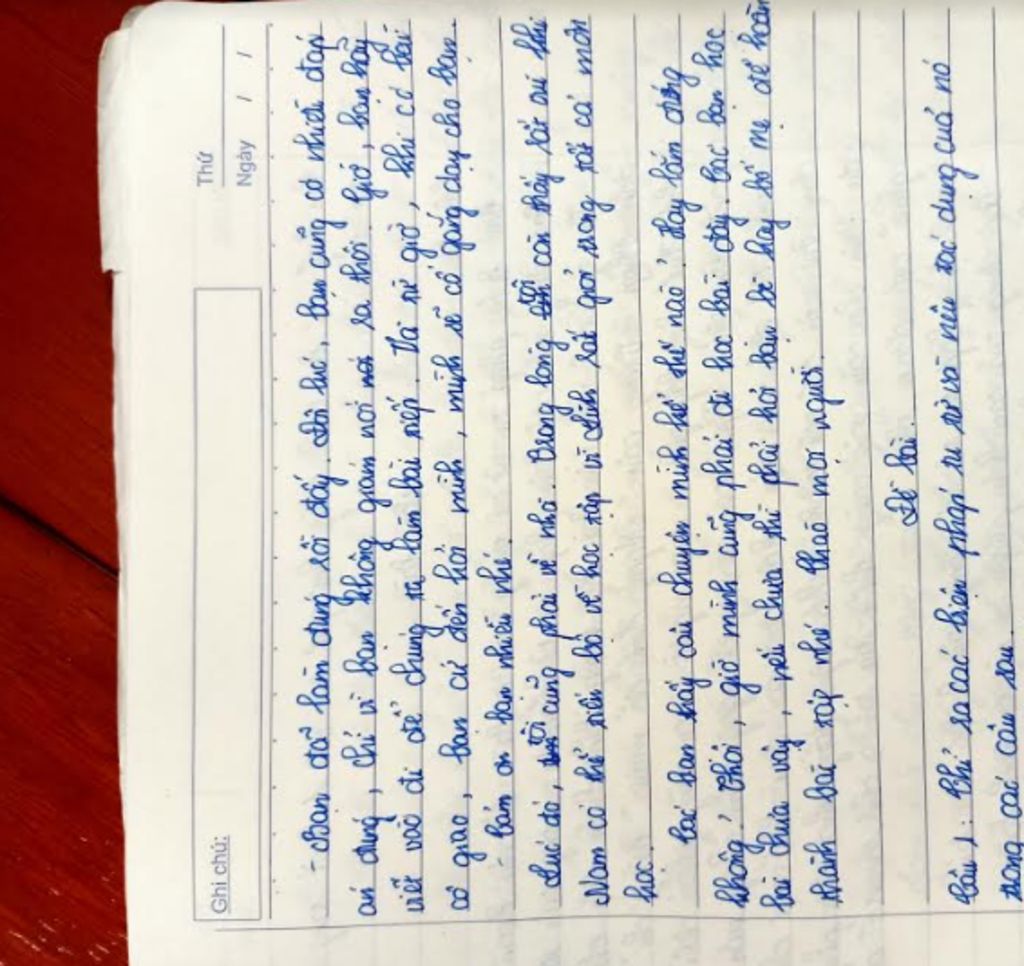 Ghi chú:
Thứ
Ngày / /
- Bạn đã làm đúng rồi đấy. Đôi lúc, bạn cũng có nhiều đáp
án đúng, chỉ vì bạn không giám nói ra thôi. Giờ, bạn hãy
viết vào đi để chúng ta làm bài tiếp. Và từ giờ, khi có bài
cô giao, bạn cứ đến hỏi mình, mình sẽ cố gắng dạy cho bạn.
- Cảm ơn bạn nhiều nhé.
Lúc đó, tôi cũng phải về nhà. Trong lòng tôi còn thấy rất vui khi
Nam có thể tiến bộ về học tập và tính rất giỏi trong tất cả môn
học.
Các bạn thấy câu chuyện mình kể thế nào? Hay lắm đúng
không? Thôi, giờ mình cũng phải đi học bài đây. Các bạn học
bài chưa vậy, nếu chưa thì phải hỏi bạn bè hay bố mẹ để hoàn
thành bài tập nhé. Chào mọi người.
Đề bài.
Câu 1: Chỉ ra các biện pháp tu từ và nêu tác dụng của nó
trong các câu sau.